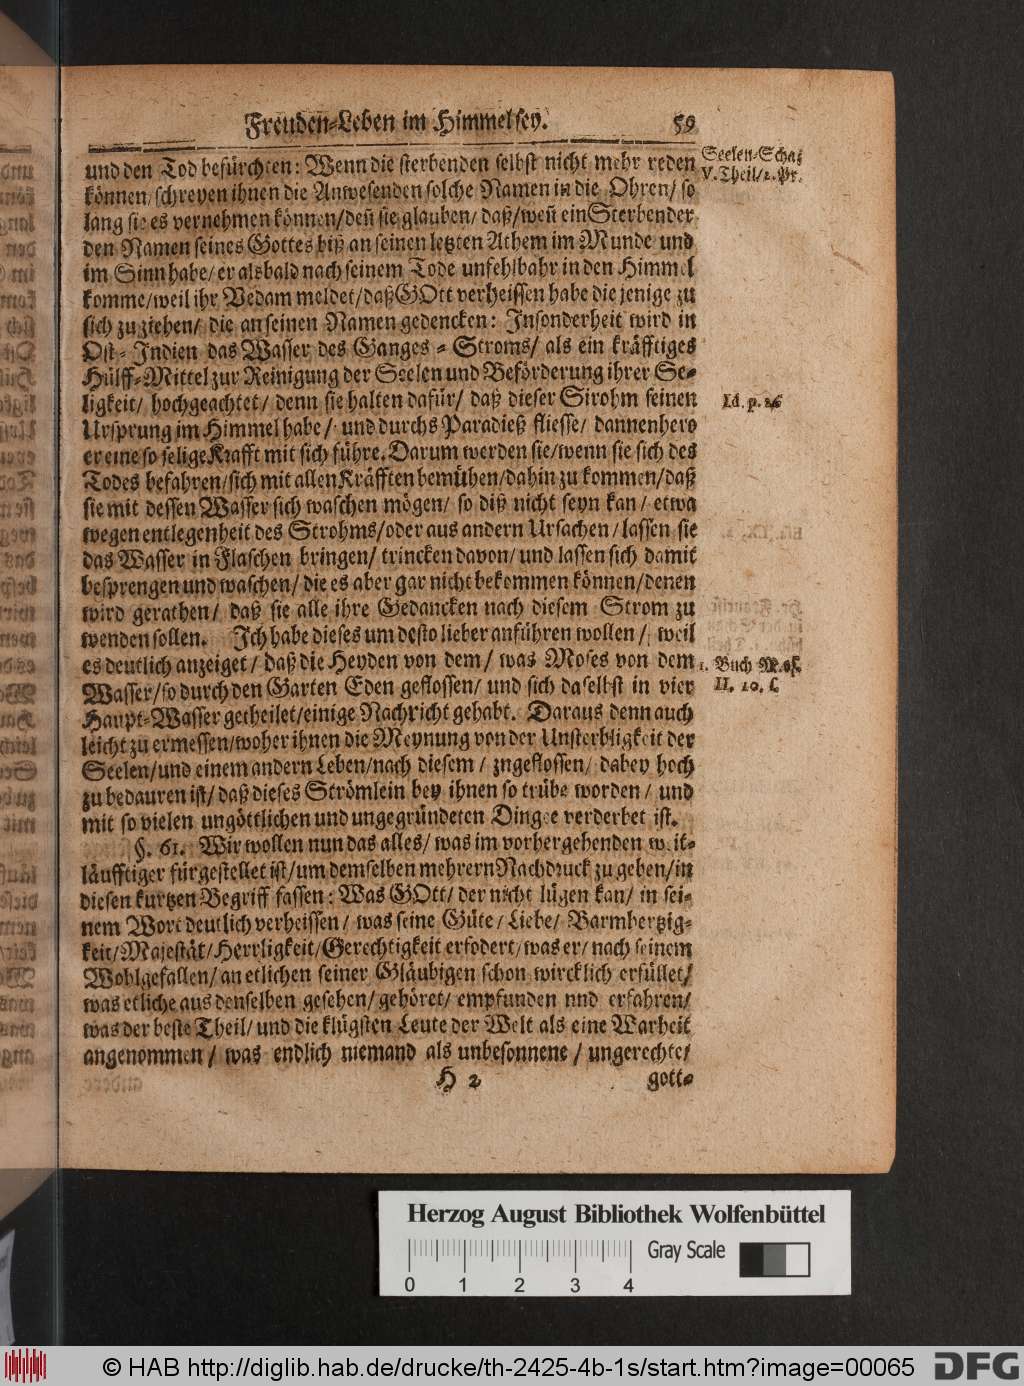 Freuden-Leben im Himmel sey. 59
und den Tod befürchten: Wenn die sterbenden selbst nicht mehr reden
können/ schreyen ihnen die Anwesenden solche Namen in die Ohren/ so
lang sie es vernehmen können/ deñ sie glauben/ daß/ weñ ein Sterbender
den Namen seines Gottes biß an seinen letzten Athem im Munde und
im Sinn habe/ er alsbald nach seinem Tode unfehlbahr in den Himmel
komme/ weil ihr Vedam meldet/ daß GOtt verheissen habe die jenige zu
sich zu ziehen/ die an seinen Namen gedencken: Insonderheit wird in
Ost-Indien das Wasser des Ganges-Stroms/ als ein kräfftiges
Hülff-Mittel zur Reinigung der Seelen und Beförderung ihrer Se-
ligkeit/ hochgeachtet/ denn sie halten dafür/ daß dieser Strohm seinen
Ursprung im Himmel habe/ und durchs Paradieß fliesse/ dannenhero
er eine so selige Krafft mit sich führe. Darum werden sie/ wenn sie sich des
Todes befahren/ sich mit allen Kräfften bemühen/ dahin zu kommen/ daß
sie mit dessen Wasser sich waschen mögen/ so diß nicht seyn kan/ etwa
wegen entlegenheit des Strohms/ oder aus andern Ursachen/ lassen sie
das Wasser in Flaschen bringen/ trincken davon/ und lassen sich damit
besprengen und waschen/ die es aber gar nicht bekommen können/ denen
wird gerathen/ daß sie alle ihre Gedancken nach diesem Strom zu
wenden sollen. Ich habe dieses um desto lieber anführen wollen/ weil
es deutlich anzeiget/ daß die Heyden von dem/ was Moses von dem
Wasser/ so durch den Garten Eden geflossen/ und sich daselbst in vier
Haupt-Wasser getheilet/ einige Nachricht gehabt. Daraus denn auch
leicht zu ermessen/ woher ihnen die Meynung von der Unsterbligkeit der
Seelen/ und einem andern Leben/ nach diesem/ zngeflossen/ dabey hoch
zu bedauren ist/ daß dieses Strömlein bey ihnen so trübe worden/ und
mit so vielen ungöttlichen und ungegründeten Dingee verderbet ist.
§. 61. Wir wollen nun das alles/ was im vorhergehenden weit-
läufftiger fürgestellet ist/ um demselben mehrern Nachdruck zu geben/ in
diesen kurtzen Begriff fassen: Was GOtt/ der nicht lügen kan/ in sei-
nem Wort deutlich verheissen/ was seine Güte/ Liebe/ Barmhertzig-
keit/ Majestät/ Herrligkeit/ Gerechtigkeit erfodert/ was er/ nach seinem
Wohlgefallen/ an etlichen seiner Gläubigen schon wircklich erfüllet/
was etliche aus denselben gesehen/ gehöret/ empfunden nnd erfahren/
was der beste Theil/ und die klügsten Leute der Welt als eine Warheit
angenommen/ was endlich niemand als unbesonnene/ ungerechte/
H 2 gott-
Seelen-Schaz
V. Theil/ 2. Pr.
Id. p. 26
1. Buch Mos.
II. 10. f.
Herzog August Bibliothek Wolfenbüttel
Gray Scale
0 1 2 3 4
© HAB http://diglib.hab.de/drucke/th-2425-4b-1s/start.htm?image=00065
DFG